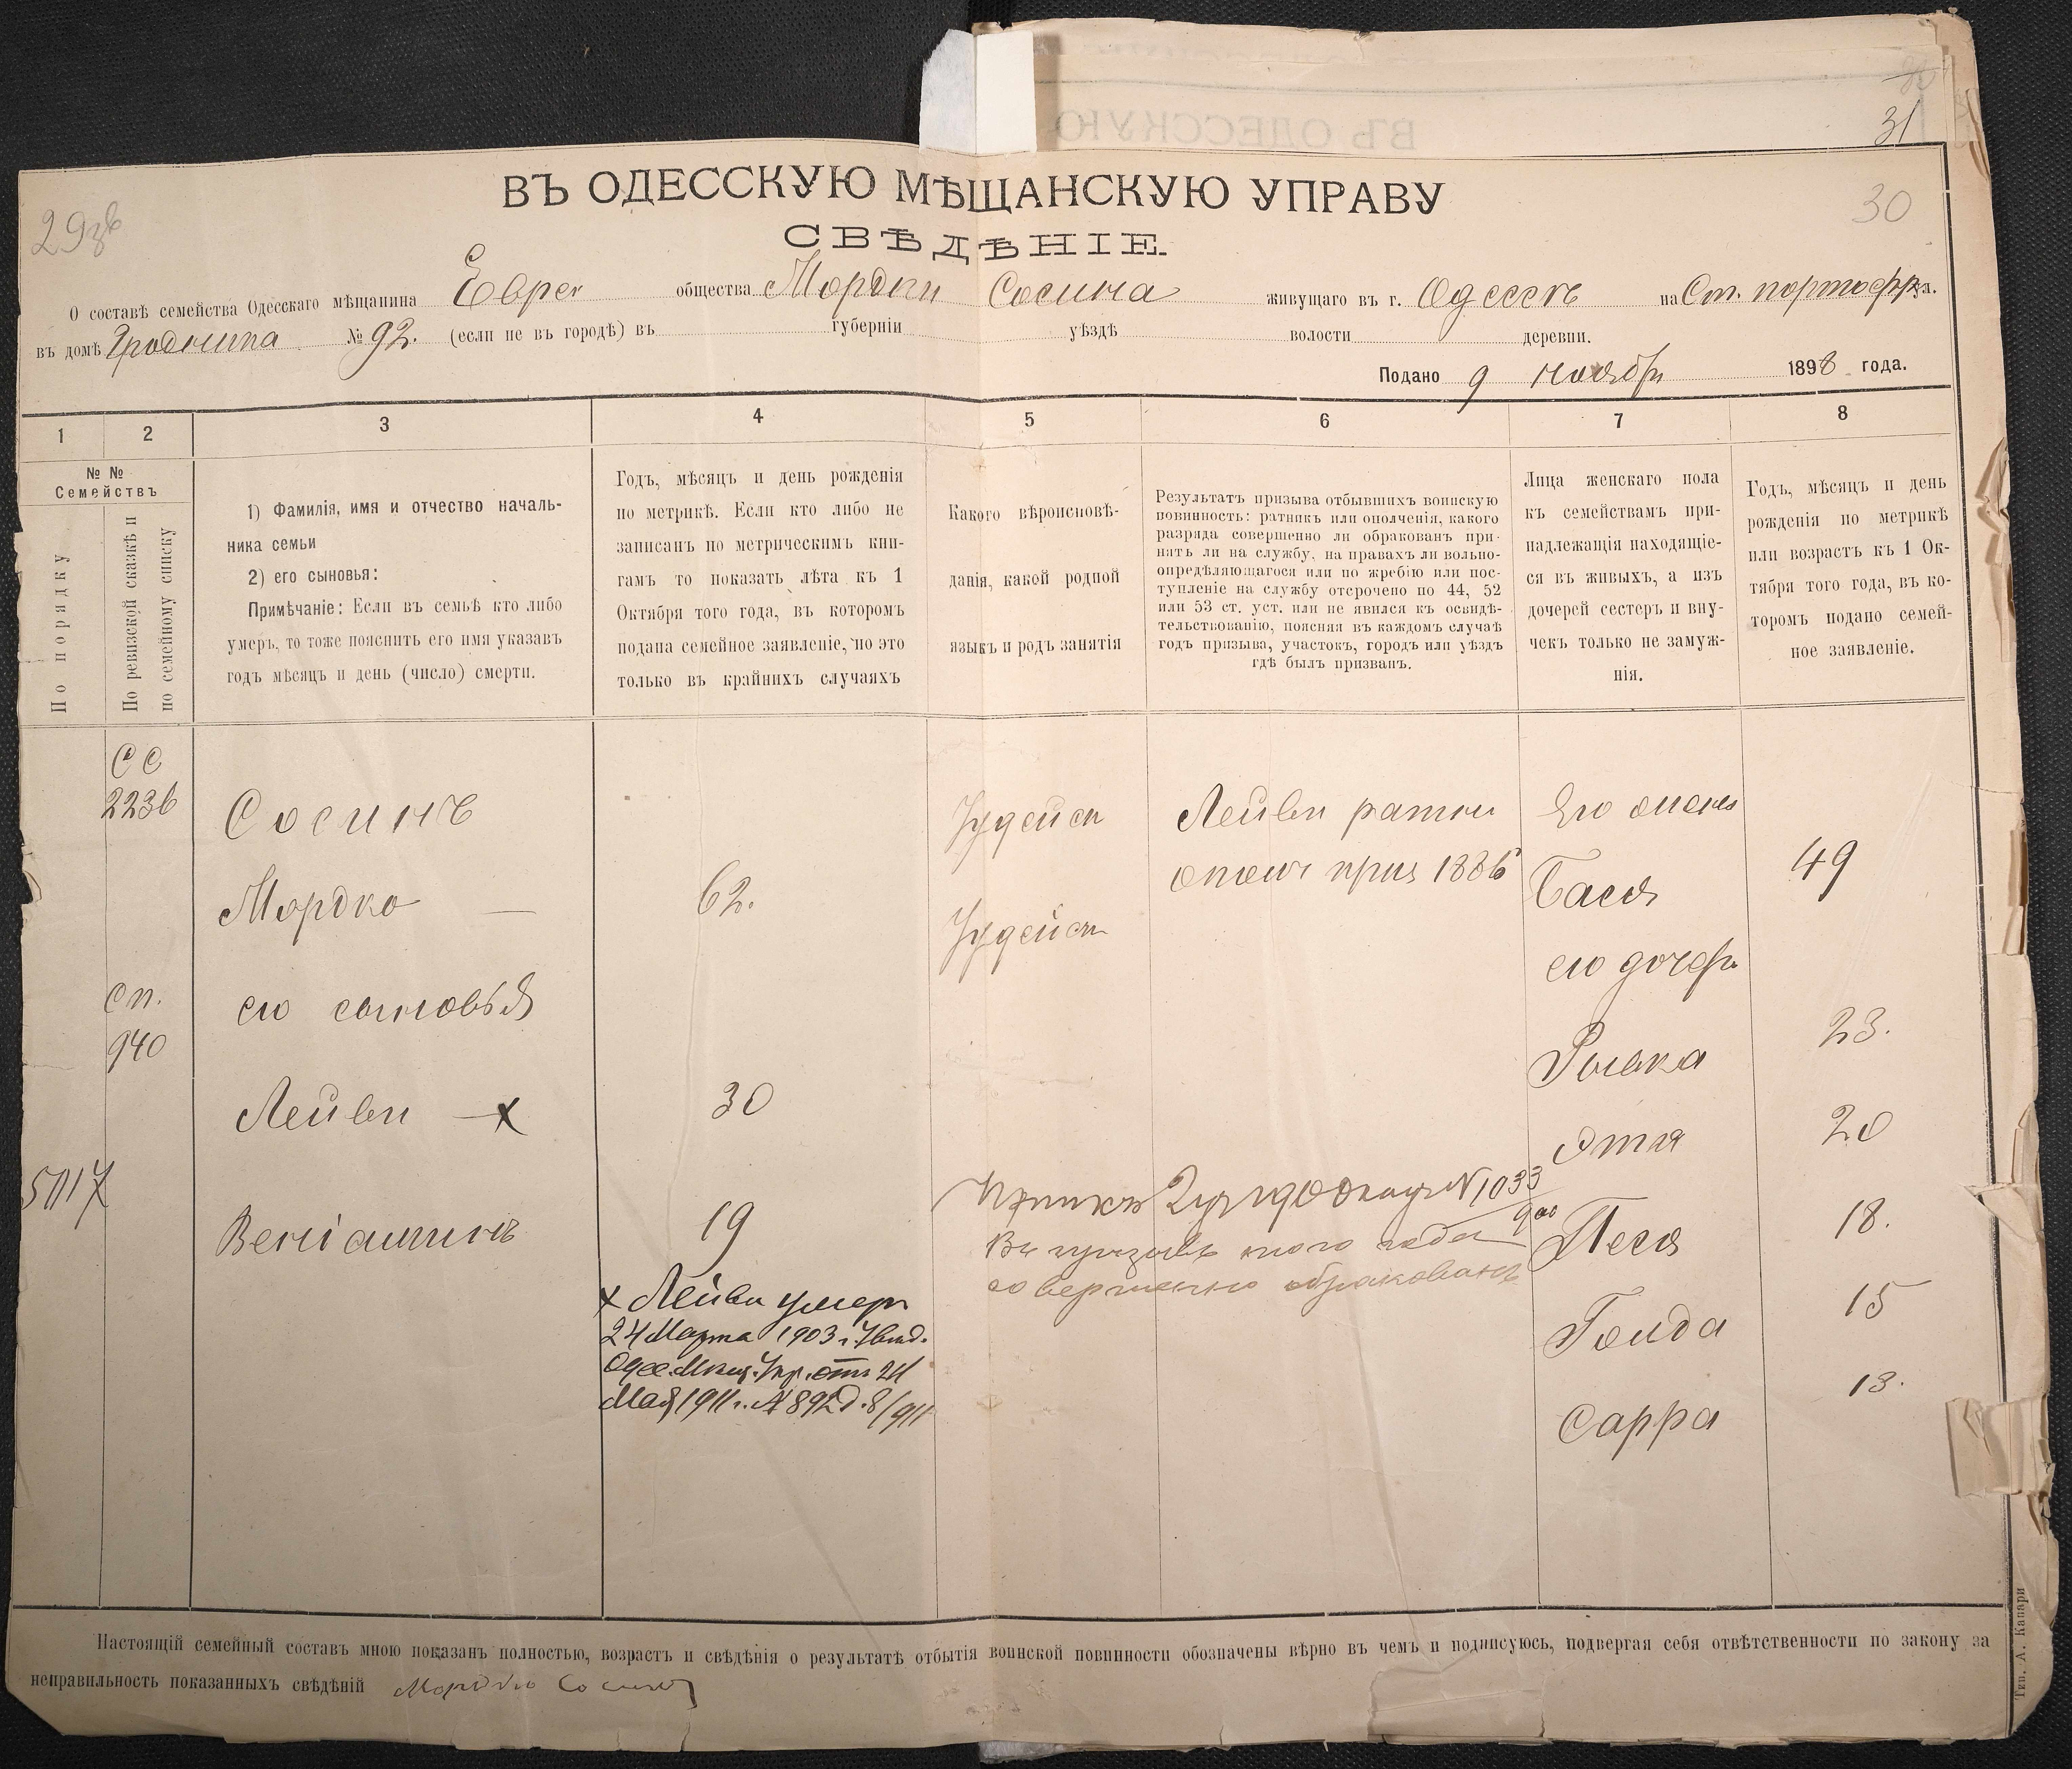 31
30
ВЪ ОДЕССКУЮ МѢЩАНСКУЮ УПРАВУ
СВѢДѢНІЕ.
О составѣ семейства Одесскаго мѣщанина Еврея общества Мордки Сосина живущаго въ г. Одессѣ на Ст. портофр. ул.
въ домѣ № 92. (если не въ городѣ) въ губерніи уѣздѣ волости деревни.
Подано 9 ноября 1898 года.
1 2 3 4 5 6 7 8
№ №
Семействъ
По порядку
По ревизской сказкѣ и
по семейному списку
1) Фамилія, имя и отчество началь-
ника семьи
2) его сыновья:
Примѣчаніе: Если въ семьѣ кто либо
умеръ, то тоже пояснить его имя указавъ
годъ мѣсяцъ и день (число) смерти.
Годъ, мѣсяцъ и день рожденія
по метрикѣ. Если кто либо не
записанъ по метрическимъ кни-
гамъ то показать лѣта къ 1
Октября того года, въ которомъ
подана семейное заявленіе, но это
только въ крайнихъ случаяхъ
Какого вѣроисповѣ-
данія, какой родной
языкъ и родъ занятія
Результатъ призыва отбывшихъ воинскую
повинность: ратникъ или ополченія, какого
разряда совершенно ли обракованъ при-
нятъ ли на службу, на правахъ ли вольно-
опредѣляющагося или по жребію или пос-
тупленіе на службу отсрочено по 44, 52
или 53 ст. уст. или не явился къ освидѣ-
тельствованію, поясняя въ каждомъ случаѣ
годъ призыва, участокъ, городъ или уѣздъ
гдѣ былъ призванъ.
Лица женскаго пола
къ семействамъ при-
надлежащія находящіе-
ся въ живыхъ, а изъ
дочерей сестеръ и вну-
чекъ только не замуж-
нія.
Годъ, мѣсяцъ и день
рожденія по метрикѣ
или возрастъ къ 1 Ок-
тября того года, въ ко-
торомъ подано семей-
ное заявленіе.
СС
2236
Сосинъ
Іудейск
Лейви ратни
ополч приз 1886
Его жена
Мордко — 62.
Іудейск
Бася 49
его дочери
сп.
940
его сыновья
Рывка 23.
Лейви — х 30
Этя 20
5117
Веніаминъ 19
№ 1033
900
Въ призывѣ сего года
совершенно обракованъ
Песя 18.
х Лейви умеръ
24 Марта 1903 г. Увѣд.
Одес. Мѣщ. Упр. отъ 24
Мая 1911 г. № 892 д. 8/911
Голда 15
Сарра 13.
Настоящій семейный составъ мною показанъ полностью, возрастъ и свѣдѣнія о результатѣ отбытія воинской повинности обозначены вѣрно въ чемъ и подписуюсь, подвергая себя отвѣтственности по закону за
неправильность показанныхъ свѣдѣній Мордко Сосинъ
Тип. А. Капари